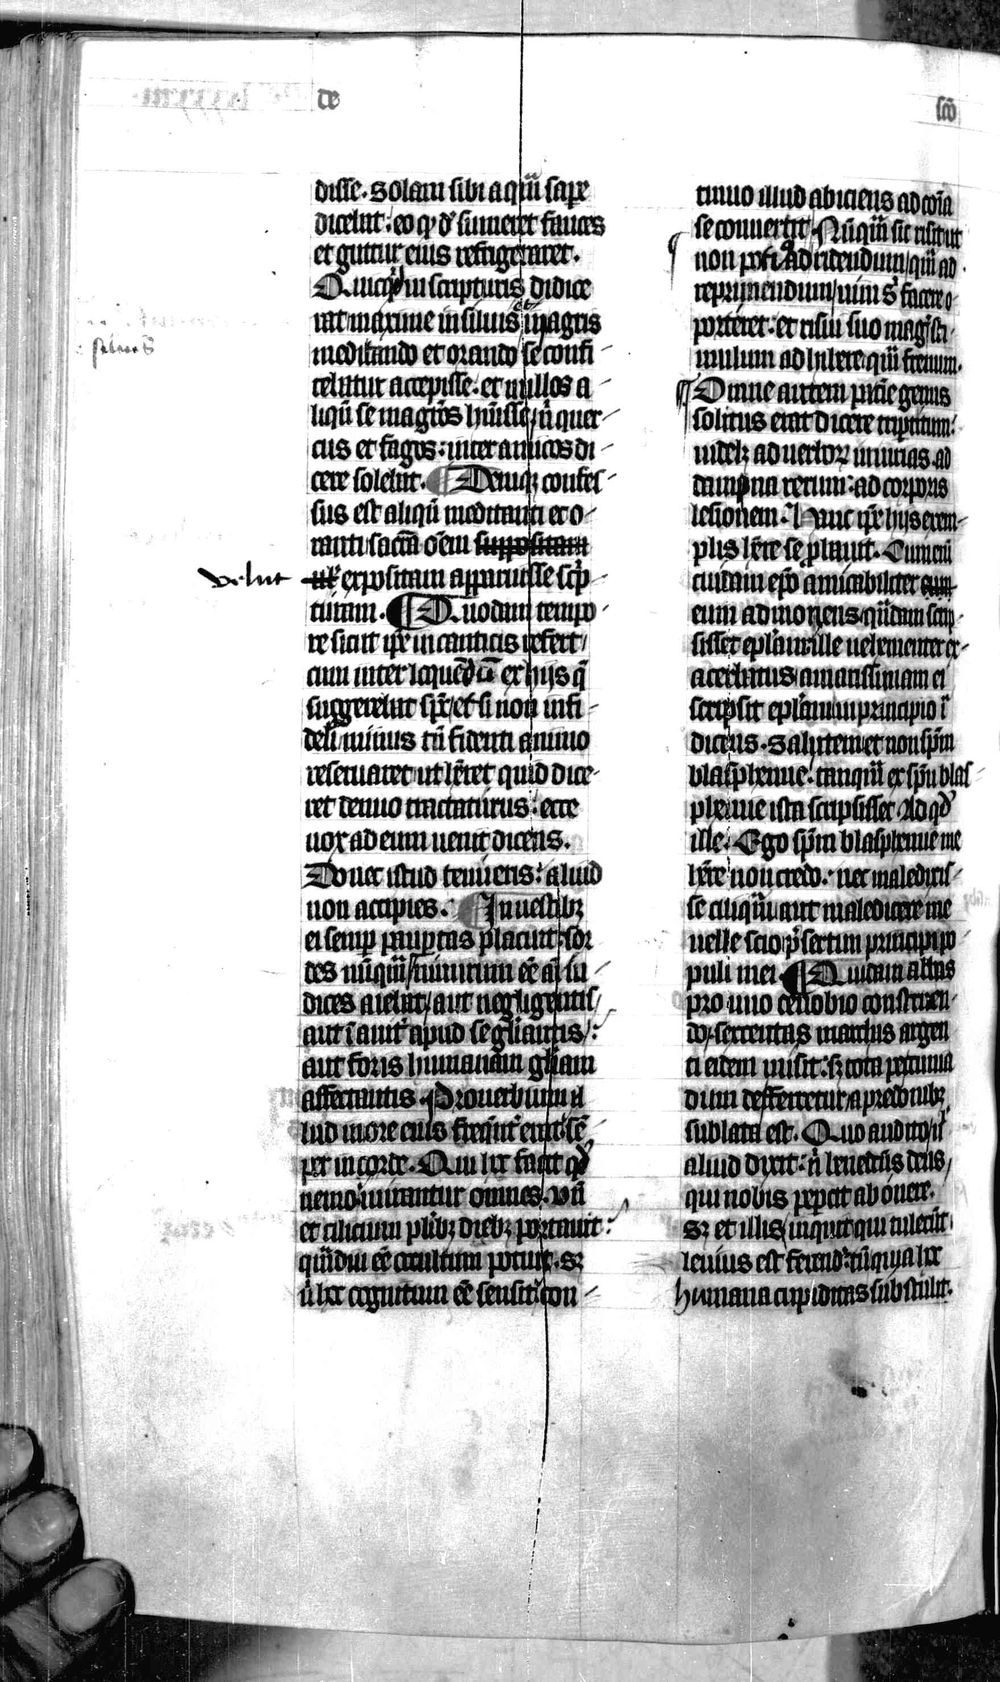 de
sco
disse. Solam sibi aquā sape
dicebat: eo qd dū sumeret fauces
et guttur eius refrigeraret.
Quicqd in scripturis didice
rat maxime in siluis et in agris
siluis
meditando et orando se confi
tebatur accepisse. et nullos a
liqū se magros habuisse nī quer
cus et fagos: inter amicos di
cere solebat. Deniqz confes
sus est aliqū meditanti et o
ranti sacrā oēm suppositam
velut
expositam apparuisse scrip
turam. Quodam tempo
re sicut ipe in canticis refert
cum inter loquendū ex hijs q
suggerebat spc et si non infi
deli minus tn fidenti animo
reseruaret ut haberet quid dice
ret denuo tractaturus: ecce
uox ad eum uenit dicens.
Donec istud tenueris: aliud
non accipies. In uestibz
ei semp paupertas placuit: sor
des nūqm nimirum eē ai īn
dices aiebat aut negligentis
aut īaniter apud se gliantis:
aut foris humanam gliam
affectantis. Prouerbium il
lud in ore eius frequent erat: sē
per in corde. Qui hoc facit qd
nemo mirantur omnes. Vn
et cilicium plibz diebz portauit:
qmdiu eē occultum potuit. Sz
ubi hoc cognitum eē sensit con
tinuo illud abiciens ad cōia
se conuertit. Nūqm sic risit ut
non potius ad ridendum qm ad
reprimendum uim s facere o
porteret: et risui suo magis sti
mulum adhibere qm frenum.
Omne autem pacie genus
solitus erat dicere tripartitum:
uidelz ad uerborz iniurias. ad
dampna rerum: ad corporis
lesionem. Hanc ipe hijs exem
plis habere se probauit. Cum eni
cuidam epo amicabiliter
eum admonens quedam scrip
sisset eplam ille uehementer ex
acerbatus amarissimam ei
scripsit eplam in principio ī
dicens. Salutem et non spm
blasphemie. tanquā ex spu blas
phemie ista scripsisset. Ad qd
ille: Ego spm blasphemie me
habere non credo. nec maledixis
se aliquē aut maledicere me
uelle scio presertim principi po
puli mei. Quidam abbas
pro uno cenobio construen
do sexcentas marchas argen
ti eidem misit: sz tota pecunia
dum defferretur a predonibz
sublata est. Quo audito nl
aliud dixit: nī benedictus deus
qui nobis pepercit ab onere.
Sz et illis inquit qui tulerūt
leuius est ferendū qm quia hoc
humana cupiditas substulit.